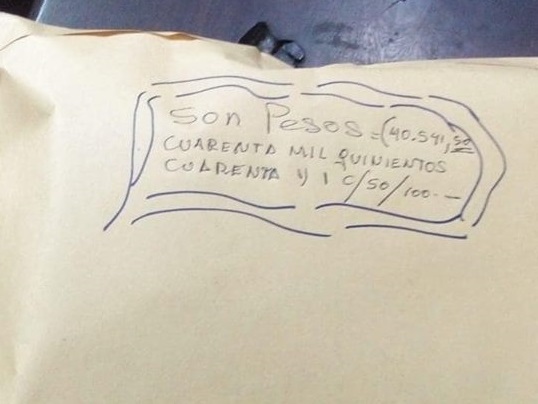 Son Pesos=(40.541,50
CUARENTA MIL QUINIENTOS
CUARENTA Y 1 C/50/100.-